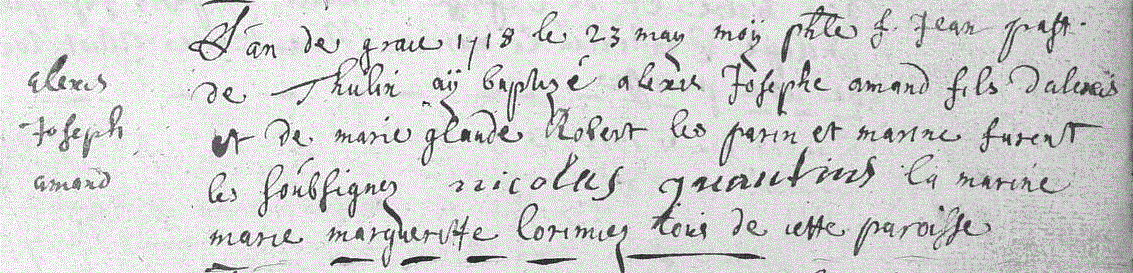 L'an de grace 1718 le 23 may moÿ phle f. Jean past.
alexis
de Thulin aÿ baptizé alexis Josephe amand fils dalexis
Joseph
et de marie glaude Robert les parin et marine furent
amand
les soubsignez nicolas quantins la marine
marie margueritte lorimiez tous de cette paroisse